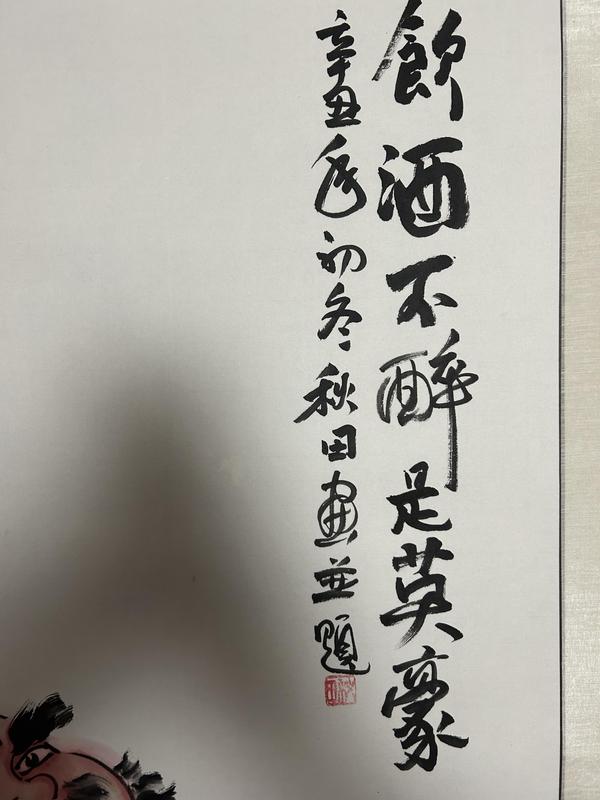 飲酒不醉是英豪
辛丑年初冬秋田畫並題